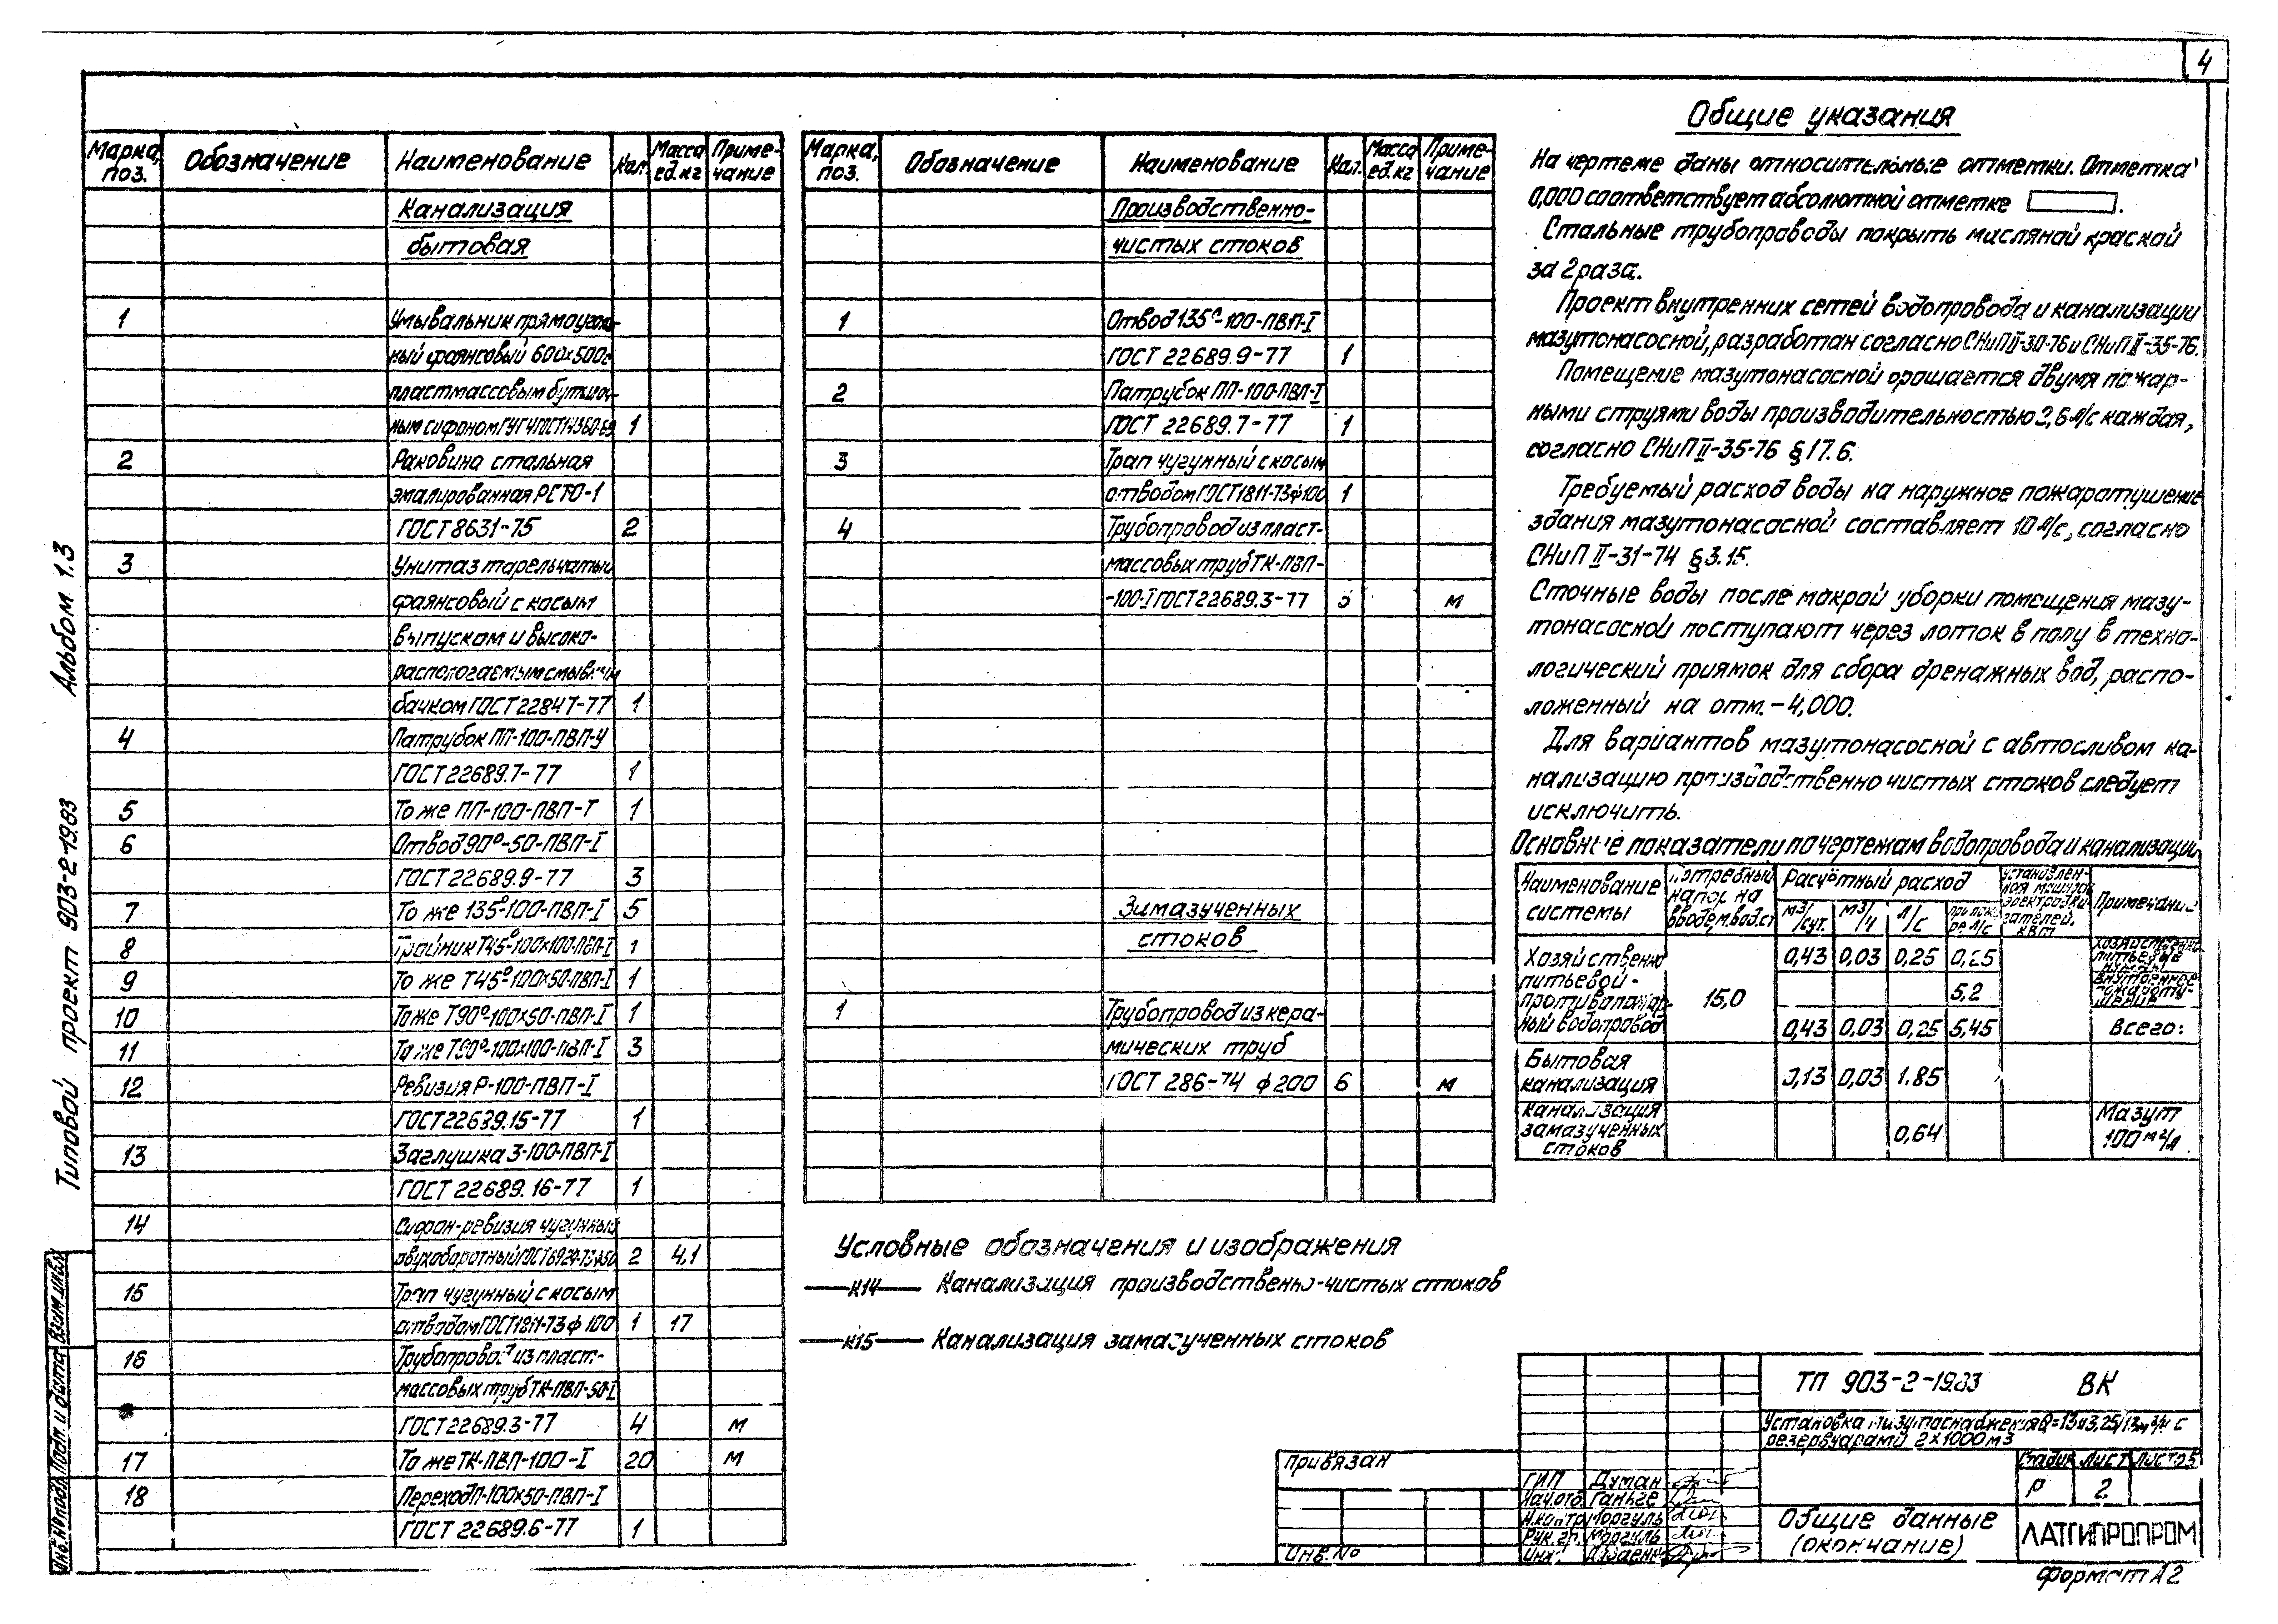 4
Марка, поз. Обозначение Наименование Кол. Масса ед. кг Приме-чание
Канализация
бытовая
1 Умывальник прямоуголь-
ный фаянсовый 600х500с
пластмассовым бутылоч-
ным сифоном ГОСТ 14360-69 1
2 Раковина стальная
эмалированная РСТО-1
ГОСТ 8631-75 2
3 Унитаз тарельчатый
фаянсовый с косым
выпуском и высоко-
располагаемым смывным
бачком ГОСТ 22847-77 1
4 Патрубок ПП-100-ПВП-У
ГОСТ 22689.7-77 1
5 То же ПП-100-ПВП-Т 1
6 Отвод 90°-50-ПВП-I
ГОСТ 22689.9-77 3
7 То же 135°-100-ПВП-I 5
8 Тройник Т45°-100х100-ПВП-I 1
9 То же Т45°-100х50-ПВП-I 1
10 То же Т90°-100х50-ПВП-I 1
11 То же Т90°-100х100-ПВП-I 3
12 Ревизия Р-100-ПВП-I
ГОСТ 22689.15-77 1
13 Заглушка З-100-ПВП-I
ГОСТ 22689.16-77 1
14 Сифон-ревизия чугунный
двухоборотный 2 4,1
15 Трап чугунный с косым
отводом ГОСТ 1811-73 ф 100 1 17
16 Трубопровод из пласт-
массовых труб ТК-ПВП-50-I
ГОСТ 22689.3-77 4 м
17 То же ТК-ПВП-100-I 20 м
18 Переход П-100х50-ПВП-I
ГОСТ 22689.6-77 1
Марка, поз. Обозначение Наименование Кол. Масса ед. кг Приме-чание
Производственно-
чистых стоков
1 Отвод 135°-100-ПВП-I
ГОСТ 22689.9-77 1
2 Патрубок ПП-100-ПВП-I
ГОСТ 22689.7-77 1
3 Трап чугунный с косым
отводом ГОСТ 1811-73 ф 100 1
4 Трубопровод из пласт-
массовых труб ТК-ПВП-
-100-I ГОСТ 22689.3-77 м
Зимазученных
стоков
1 Трубопровод из кера-
мических труб
ГОСТ 286-74 ф 200 6 м
Условные обозначения и изображения
К14 Канализация производственно-чистых стоков
К15 Канализация замазученных стоков
Общие указания
На чертеже даны относительные отметки. Отметка
0,000 соответствует абсолютной отметке .
Стальные трубопроводы покрыть масляной краской
за 2 раза.
Проект внутренних сетей водопровода и канализации
мазутонасосной, разработан согласно СНиП II-30-76 и СНиП II-35-76.
Помещение мазутонасосной орошается двумя пожар-
ными струями воды производительностью 2,6 л/с каждая,
согласно СНиП II-35-76 §17.6.
Требуемый расход воды на наружное пожаротушение
здания мазутонасосной составляет 10 л/с, согласно
СНиП II-31-74 §3.15.
Сточные воды после мокрой уборки помещения мазу-
тонасосной поступают через лоток в полу в техно-
логический приямок для сбора дренажных вод, распо-
ложенный на отм. -4,000.
Для вариантов мазутонасосной с автосливом ка-
нализацию производственно чистых стоков следует
исключить.
Основные показатели по чертежам водопровода и канализации
Наименование системы Потребный напор на вводе, м.вод.ст Расчётный расход м3/сут. м3/ч л/с при пожаре л/с Установлен-ная мощность электродви-гателей, кВт Примечание
Хозяйственно питьевой - противопожар-ный водопровод 15,0 0,43 0,03 0,25 0,25 хозяйственно питьевые нужды
5,2 внутреннее пожароту-шение
0,43 0,03 0,25 5,45 всего:
Бытовая канализация 0,13 0,03 1.85
Канализация замазученных стоков 0,64 Мазут
Альбом 1.3
Типовой проект 903-2-19.83
Инв. № подл. Подп. и дата Взам. инв. №
Привязан
Инв. №
ГИП Думан
Нач. отд. Ганьге
Н. контр. Моргуль
Рук. гр. Моргуль
Инж.
ТП 903-2-19.83 ВК
Установка мазутоснабжения Q=13 и 3,25/13 м3/ч с
резервуарами 2х1000 м3
Стадия Лист Листов
Р 2
Общие данные
(окончание)
ЛАТГИПРОПРОМ
Формат А2